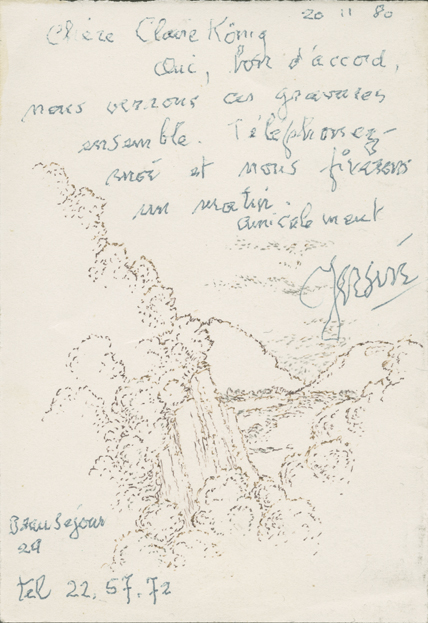 20 11 80
Chère Claire König
Oui, bon d'accord,
nous verrons ces gravures
ensemble. Téléphonez-
moi et nous fixerons
un matin.
amicalement
Beau Séjour
29
tel 22.57.72